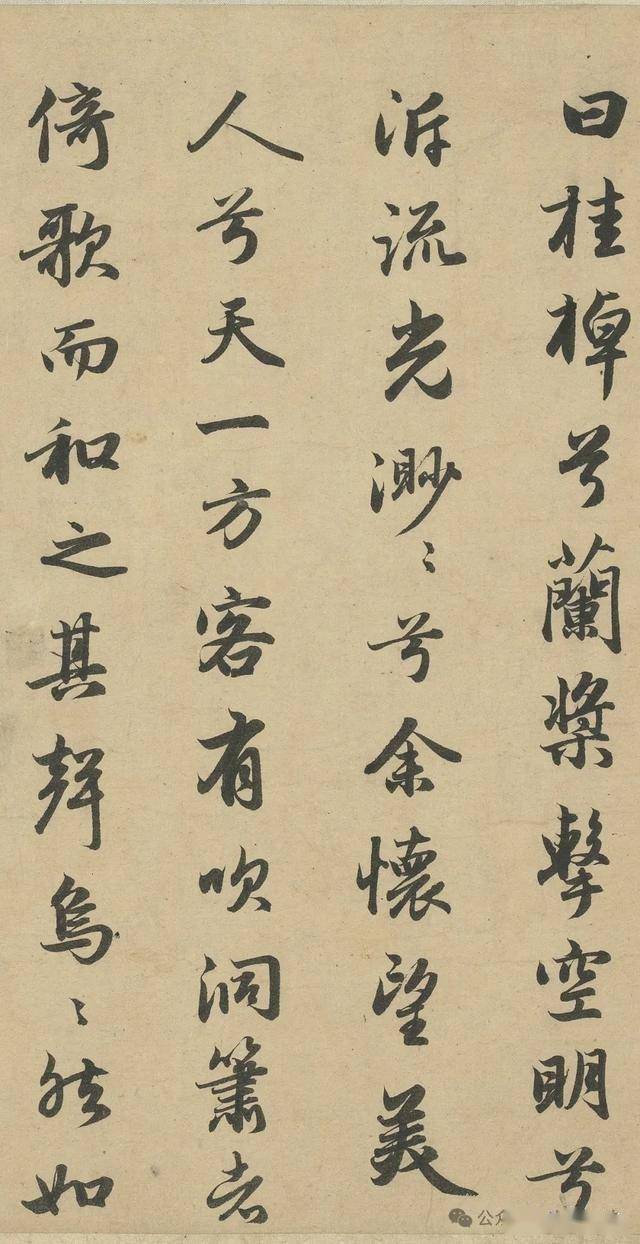 曰桂棹兮蘭槳擊空明兮
泝流光渺〻兮余懷望美
人兮天一方客有吹洞簫者
倚歌而和之其聲烏〻然如
公众